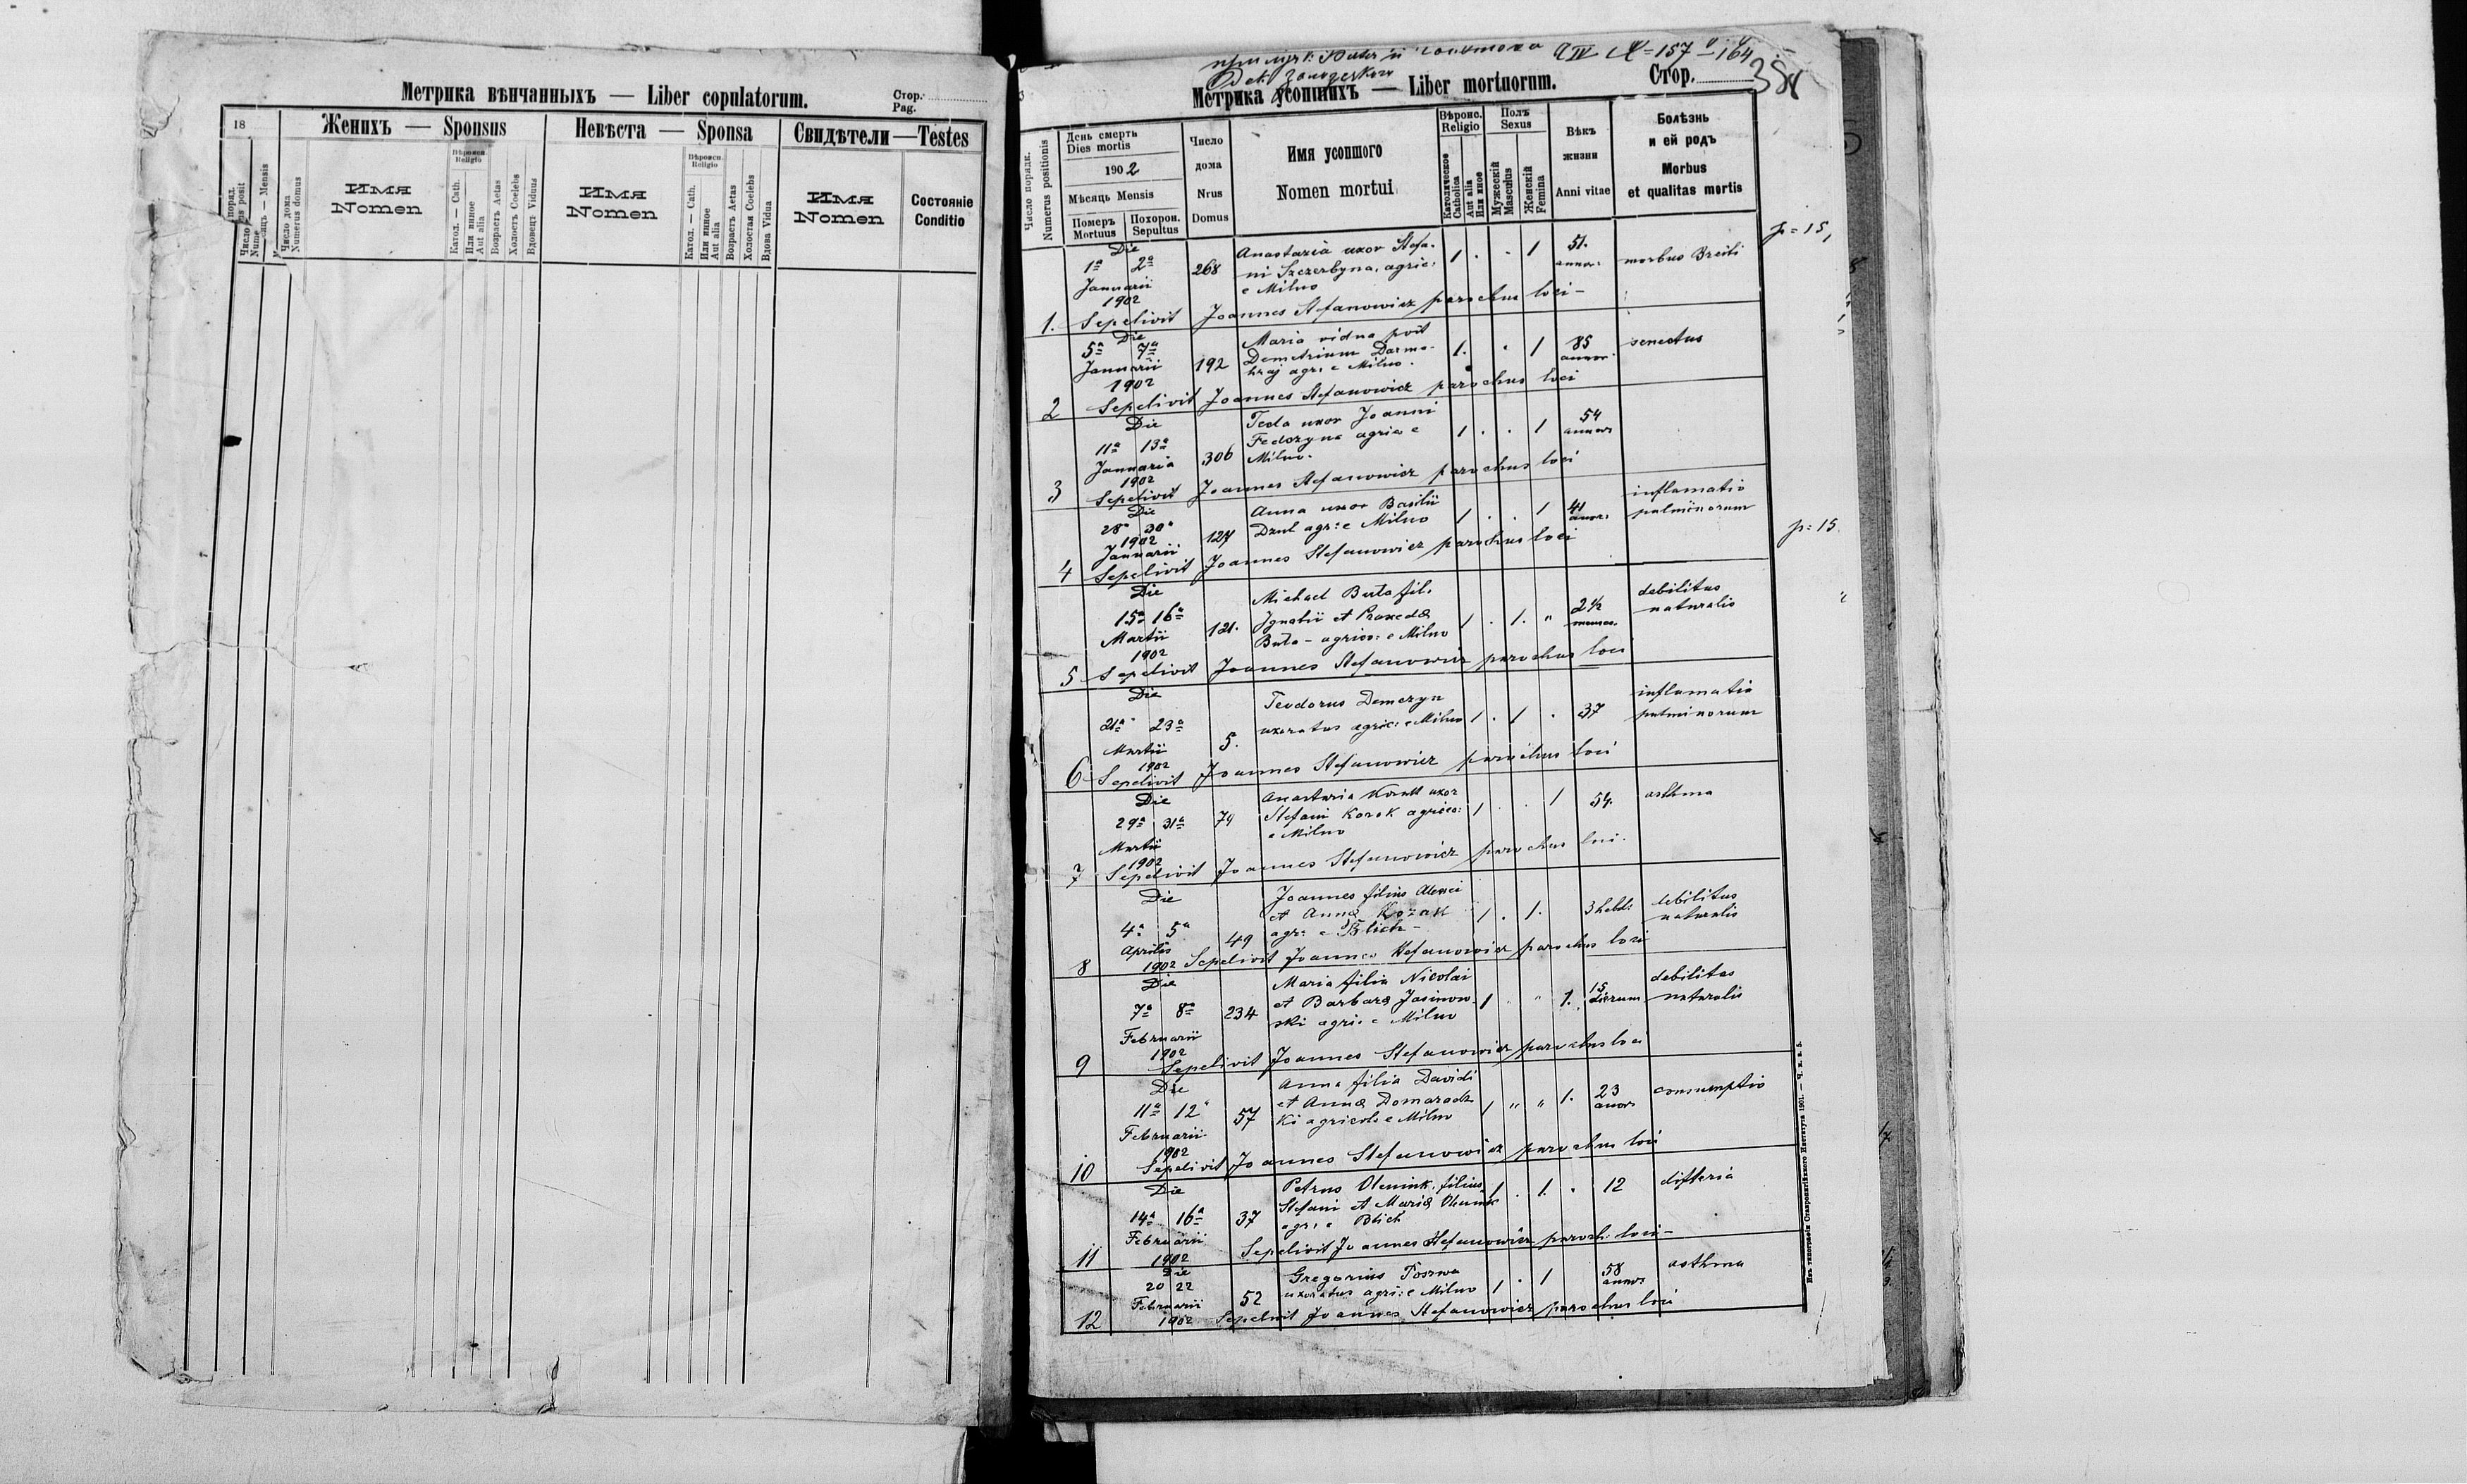 Метрика вѣнчанныхъ — Liber copulatorum.
Стор.
Pag.
18
Женихъ — Sponsus
Невѣста — Sponsa
Свидѣтели — Testes
Имя
Nomen
Вѣроисп.
Religio
Катол. — Cath.
Или инное
Aut alia
Возрастъ Aetas
Холостъ Coelebs
Вдовецъ Viduus
Имя
Nomen
Вѣроисп.
Religio
Катол. — Cath.
Или инное
Aut alia
Возрастъ Aetas
Холостая Coelebs
Вдова Vidua
Имя
Nomen
Состояніе
Conditio
Число дома
Numerus domus
157 - 164
Метрика усопшихъ — Liber mortuorum.
Стор.
Число порядк.
Numerus positionis
День смерть
Dies mortis
1902
Мѣсяць Mensis
Померъ
Mortuus
Похорон.
Sepultus
Число
дома
Nrus
Domus
Имя усопшого
Nomen mortui
Вѣроис.
Religio
Католическое
Catholica
Aut alia
Или иное
Полъ
Sexus
Мужескій
Masculus
Женскій
Femina
Вѣкъ
жизни
Anni vitae
Болѣзнь
и ей родъ
Morbus
et qualitas mortis
Die
1a 2a
Januarii
1902
268
Anastazia uxor Stefa-
ni Szczerbyna, agric:
e Milno
1 . . 1
51.
annor:
morbus Breiti
p=15,
1. Sepelivit Joannes Stefanowicz parochus loci -
Die
5a 7a
Januarii
1902
192
Maria vidua post
Demetrium Darmo-
hraj agr: e Milno.
1. . 1
85
annor.
senectus
2 Sepelivit Joannes Stefanowicz parochus loci
Die
11a 13a
Januaria
1902
306
Tecla uxor Joanni
Fedczyna agric e
Milno.
1 . . 1
54
annor
3 Sepelivit Joannes Stefanowicz parochus loci
Die
28a 30a
1902
Januarii
127
Anna uxor Basilii
Dzul agr: e Milno
1 . . 1
41
annor:
inflamatio
pulminorum
p=15.
4 Sepelivit Joannes Stefanowicz parochus loci
Die
15a 16a
Martii
1902
121.
Michael Buta fil.
Ignatii et Praxedæ
Buta - agrico: e Milno
1 . 1. "
2 1/2
debilitas
naturalis
5 Sepelivit Joannes Stefanowicz parochus loci
Die
21a 23a
Martii
1902
5.
Teodorus Demczyn
uxoratus agric: e Milno
1 . 1 .
37
inflamatio
pulminorum
6 Sepelivit Joannes Stefanowicz parochus loci
Die
29a 31a
Martii
1902
79
uxor
Stefani Korok agrico:
e Milno
1 . . 1
54.
asthma
7 Sepelivit Joannes Stefanowicz parochus loci.
Die
4a 5a
Aprilis
1902
49
Joannes filius Alexei
et Annæ Kozak
agr: e Blich -
1 . 1.
3 hebd:
debilitas
naturalis
8 Sepelivit Joannes Stefanowicz parochus loci
Die
7a 8a
Februarii
1902
234
Maria filia Nicolai
et Barbaræ Jasinow-
ski agri: e Milno
1 " " 1.
15
dierum
debilitas
naturalis
9 Sepelivit Joannes Stefanowicz parochus loci
Die
11a 12a
Februarii
1902
57
Anna filia Davidi
et Annæ Domaradz
ki agricola e Milno
1 " " 1.
23
annor
consumptio
10 Sepelivit Joannes Stefanowicz parochus loci
Die
14a 16a
Februarii
1902
37
Petrus Olenink filius
Stefani et Mariæ
agr: e Blich
1 . 1. .
12
difteria
11 Sepelivit Joannes Stefanowicz paroch: loci -
Die
20 22
Februarii
1902
52
Gregorius
uxoratus agri: e Milno
1 . 1
58
annor
asthma
12 Sepelivit Joannes Stefanowicz parochus loci
Изъ типографіи Ставропигійского Института 1901.